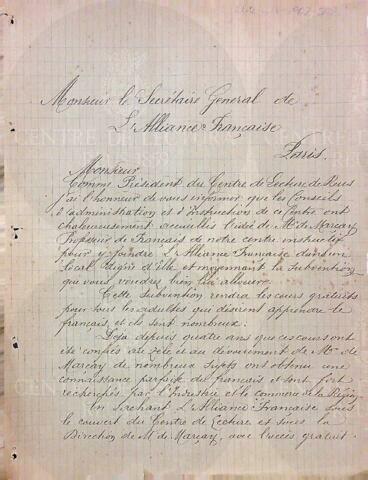 Monsieur le Secrétaire General de
L'Alliance Française
Paris.
Monsieur
Comme Président du Centre de Lecture de Reus
j'ai l'honneur de vous informer que les Conseils
d'administration et d'Instruction de ce Centre ont
chaleureusement accueilli l'idée de Mr. de Marcay
Professeur de Français de notre centre instructif
pour y joindre L'Alliance Française dans un
local digne d'elle et moyennant la Subvention
que vous voudrez bien lui allouer.
Cette subvention rendra les cours gratuits
pour tous les adultes qui désirent apprendre le
français, et ils sont nombreux.
Déja depuis quatre ans que ces cours ont
été confiés au zèle et au dévouement de Mr. de
Marcay de nombreux sujets ont obtenu une
connaissance parfaite du français et sont fort
recherchés par l'Industrie et le commerce de la Région
En sachant L'Alliance Française sous
le couvert du Centre de Lecture et sous la
Direction de M. de Marcay, avec l'accès gratuit